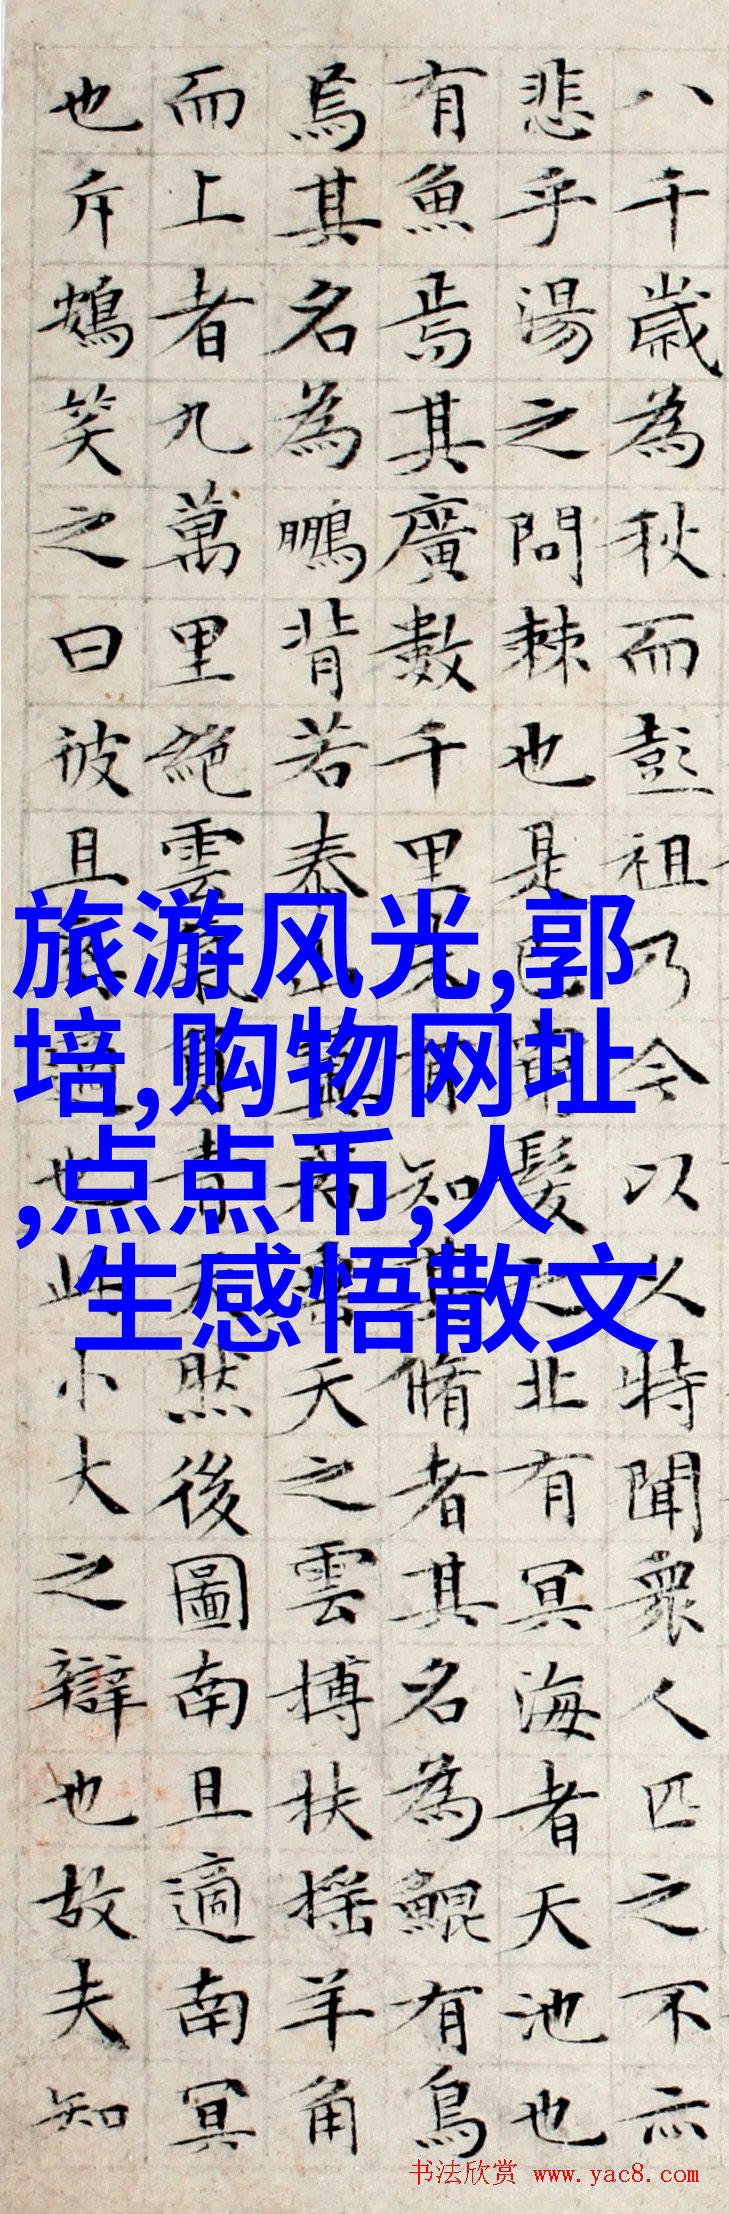 八千歲為秋而彭祖乃今以久特聞衆人匹之不亦
悲乎湯之問棘也是已窮髮之北有冥海者天池也
有魚焉其廣數千里未有知其脩者其名為鯤有鳥
焉其名為鵬背若泰山翼若垂天之雲搏扶搖羊角
而上者九萬里絕雲氣負青天然後圖南且適南冥
也斥鴳笑之曰彼且奚適也此小大之辯也故夫知
旅游风光,郭
培,购物网址
,点点币,人
生感悟散文
书法欣赏 www.yac8.com